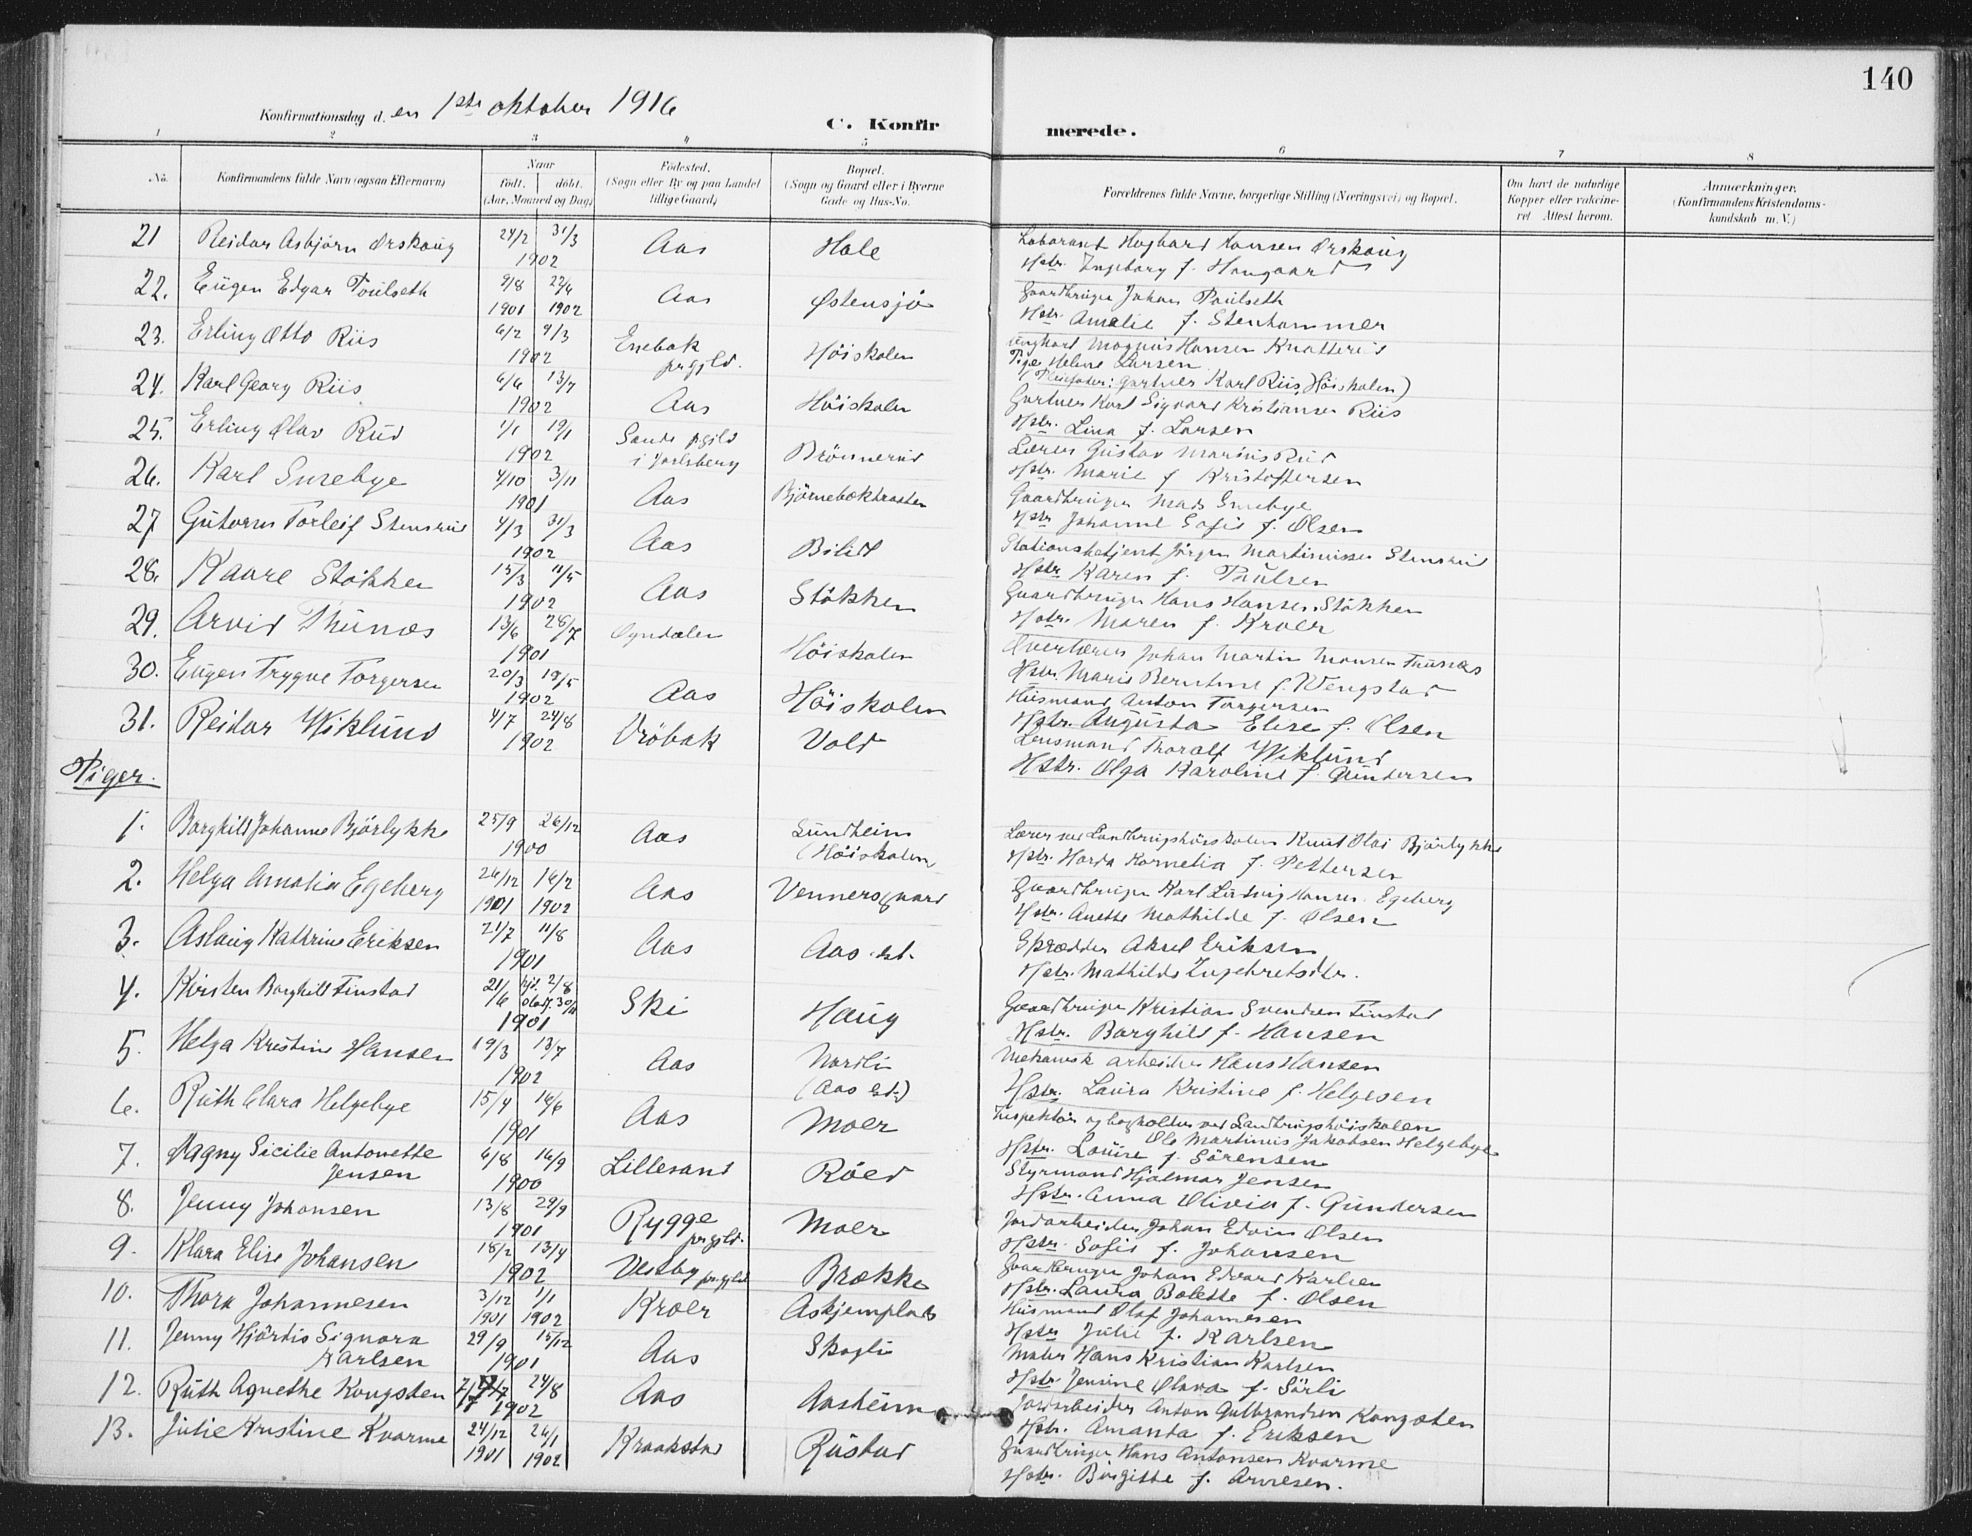 140
Konfirmationsdag d. en 1ste oktober 1916
C. Konfirmerede.
1 2 3 4 5 6 7 8
No. | Konfirmandens fulde Navn (ogsaa Efternavn) | Naar født. døbt. (Aar, Maaned og Dag) | Fødested. (Sogn eller By og paa Landet tillige Gaard) | Bopæl. (Sogn og Gaard eller i Byerne Gade og Hus-No. | Forældrenes fulde Navne, borgerlige Stilling (Næringsvei) og Bopæl. | Om havt de naturlige Kopper eller vakcineret. Attest herom. | Anmærkninger. (Konfirmandens Kristendomskundskab m. V.)
21 Reidar Asbjørn Ørskaug 24/2 31/3 1902 Aas Hole Laborant Hagbart Hansen Ørskaug
Hstr. Ingeborg f. Haugaard
22. Eugen Edgar Poulseth 9/8 1901 22/6 1902 Aas Østensjø Gaardbruger Johan Paulseth
Hstr. Amalie f. Stenhammer
23. Erling Otto Riis 6/2 9/3 1902 Enebak prgjld. Høiskolen Ungkarl Magnus Hansen Knatterud
Pige Helene Larsen
(Pleiefader: Gartner Karl Riis, Høiskolen)
24. Karl Georg Riis 6/6 13/7 1902 Aas Høiskolen Gartner Karl Sigvard Kristiansen Riis
Hstr. Lina f. Larsen
25. Erling Olav Rud 1/1 19/1 1902 Sande prgjld i Jarlsberg Brønnerud Lærer Gustav Marius Rud
Hstr. Marie f. Kristoffersen
26. Karl Smebye 4/10 3/11 1901 Aas Bjørnebæktraaten Gaardbruger Mads Smebye
Hstr Johanne Sofie f. Olsen
27 Gutorm Torleif Stensrud 4/3 31/3 1902 Aas Bilitt Stationsbetjent Jørgen Martinussen Stensrud
Hstr Karen f. Paulsen
28. Kaare Støkken 15/3 11/5 1902 Aas Støkken Gaardbruger Hans Hansen Støkken
Hstr. Maren f. Kroer
29. Arvid Thunæs 13/6 28/7 1901 Øyndalen Høiskolen Overlærer Johan Martin Monsen Thunæs
Hstr. Marie Berntine f. Wengstad
30. Eugen Trygve Torgersen 20/3 18/5 1902 Aas Høiskolen Husmand Anton Torgersen
Hstr. Augusta Elise f. Olsen
31. Reidar Wiklund 4/7 24/8 1902 Drøbak Vold Lensmand Thoralf Wiklund
Hstr. Olga Karoline f. Gundersen
Piger.
1. Borghild Johanne Bjørlykke 25/9 26/12 1900 Aas Sundheim (Høiskolen) Lærer ved Landbrugshøiskolen Knut Olai Bjørlykke
Hstr. Harda Kornelia f. Pettersen
2. Helga Amalia Egeberg 26/12 1901 16/2 1902 Aas Vennersgaard Gaardbruger Karl Ludvig Hansen Egeberg
Hstr. Anette Mathilde f. Olsen
3. Aslaug Kathrine Eriksen 21/7 11/8 1901 Aas Aas st. Skrædder Aksel Eriksen
Hstr. Mathilde Ingebretsdtr.
4. Kirsten Borghild Finstad 21/6 hjd. 2/8 1901 Ski Haug Gaardbruger Kristian Svendsen Finstad
Hstr. Borghild f. Hansen
5. Helga Kristine Hansen 19/3 13/7 1902 Aas Nordli (Aas st.) Mekanisk arbeider Hans Hansen
Hstr. Laura Kristine f. Helgesen
6. Ruth Clara Helgebye 15/4 16/6 1901 Aas Moer Inspektør og bogholder ved Landbrugshøiskolen
Ole Martinius Jakobsen Helgebye
Hstr. Louise f. Sørensen
7. Dagny Sicilie Antonette Jensen 6/8 16/9 1900 Lillesand Røed Styrmand Hjalmar Jensen
Hstr. Anna Olivia f. Gundersen
8. Jenny Johansen 13/8 29/9 1901 Rygge prgjld. Moer Jordarbeider Johan Edvin Olsen
Hstr. Sofie f. Johansen
9. Klara Elise Johansen 18/2 13/4 1902 Vestby prgjld Brække Gaardbruger Johan Edvard Karlsen
Hstr. Laura Bolette f. Olsen
10. Thora Johannesen 3/12 1901 1/1 1902 Kroer Askjemplads Husmand Olaf Johannesen
Hstr Julie f. Karlsen
11. Jenny Hjørdis Signora Karlsen 29/9 15/12 1901 Aas Skogli Maler Hans Kristian Karlsen
Hstr. Jensine Olava f. Sørli
12. Ruth Agnethe Kongsten 24/8 1902 Aas Aasheim Jordarbeider Anton Gulbrandsen Kongsten
Hstr. Amanda f. Eriksen
13. Julie Kristine Kvarme 24/12 1901 26/1 1902 Kraakstad Rustad Gaardbruger Hans Antonsen Kvarme
Hstr. Birgitte f. Arnesen.